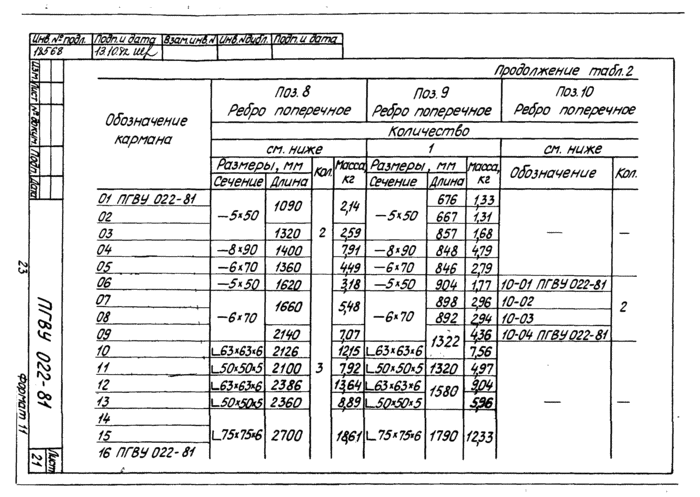 Инв. № подл. Подп. и дата Взам. инв. № Инв. № дубл. Подп. и дата
13568 13.10.92
Продолжение табл. 2
Обозначение кармана
Поз. 8 Поз. 9 Поз. 10
Ребро поперечное Ребро поперечное Ребро поперечное
Количество
см. ниже 1 см. ниже
Размеры, мм Кол. Масса, кг Размеры, мм Масса, кг Обозначение Кол.
Сечение Длина Сечение Длина
01 ПГВУ 022-81 –5×50 1090 2 2,14 –5×50 676 1,33 — —
02 667 1,31
03 1320 2,59 857 1,68
04 –8×90 1400 7,91 –8×90 848 4,79
05 –6×70 1360 4,49 –6×70 846 2,79
06 –5×50 1620 3 3,18 –5×50 904 1,77 10-01 ПГВУ 022-81 2
07 –6×70 1660 5,48 –6×70 898 2,96 10-02
08 892 2,94 10-03
09 2140 7,07 1322 4,36 10-04 ПГВУ 022-81
10 ∟63×63×6 2126 12,15 ∟63×63×6 7,56 — —
11 ∟50×50×5 2100 7,92 ∟50×50×5 1320 4,97
12 ∟63×63×6 2386 13,64 ∟63×63×6 1580 9,04
13 ∟50×50×5 2360 8,89 ∟50×50×5 5,96
14
15 ∟75×75×6 2700 18,61 ∟75×75×6 1790 12,33
16 ПГВУ 022-81
Изм Лист № докум. Подп. Дата
ПГВУ 022-81
Лист
21
23
Формат 11